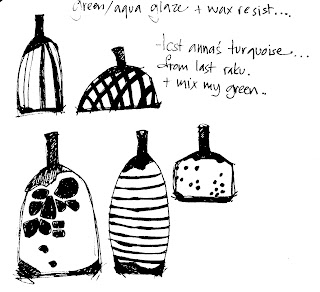 green/aqua glaze + wax resist....
-test anna's turquoise...
from last raku.
+ mix my green..